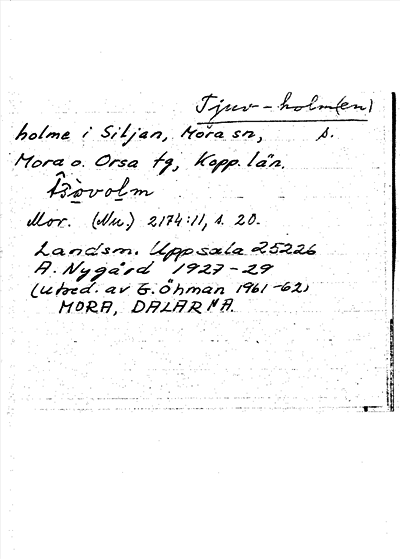 Tjuv-holm(en)
holme i Siljan, Mora sn, s.
Mora o. Orsa tg, Kopp. län.
Mor. (Nu.) 2174:11, s. 20.
Landsm. Uppsala 25226
A. Nygård 1927-29
(utred. av E. Öhman 1961-62)
MORA, DALARNA.